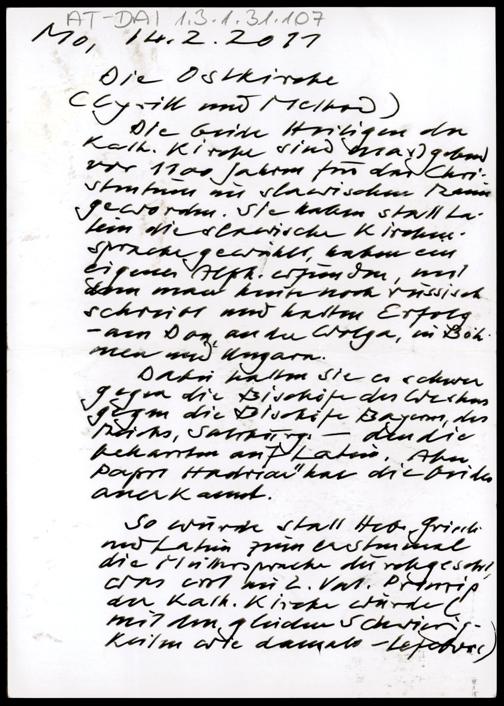 AT-DAI 1.3.1.31.107
Mo, 14.2.2011
Die Ostkirche
(Cyrill und Method)
Die beide Heiligen der
Kath. Kirche sind maszgebend
vor 1100 Jahren für das Chri-
stentum im slawischen Raum
geworden. Sie haben statt La-
tein die slawische Kirchen-
sprache gewählt, haben ein
eigenes Alph. erfunden, mit
dem man heute noch russisch
schreibt und hatten Erfolg
– am Don, an der Wolga, in Böh-
men und Ungarn.
Dabei hatten sie es schwer
gegen die Bischöfe des Westens
gegen die Bischöfe Bayerns, des
Reichs, Salzburgs – den die
beharrten auf Latein. Aber
Papst Hadrian II hat die beiden
anerkannt.
So wurde statt Hebr. Griech
und Latein zum erstenmal
die Muttersprache durchgesetzt,
was erst im 2. Vat. Prinzip
der Kath. Kirche wurde (
mit den gleichen Schwierig-
keiten wie damals – Lefebvre)